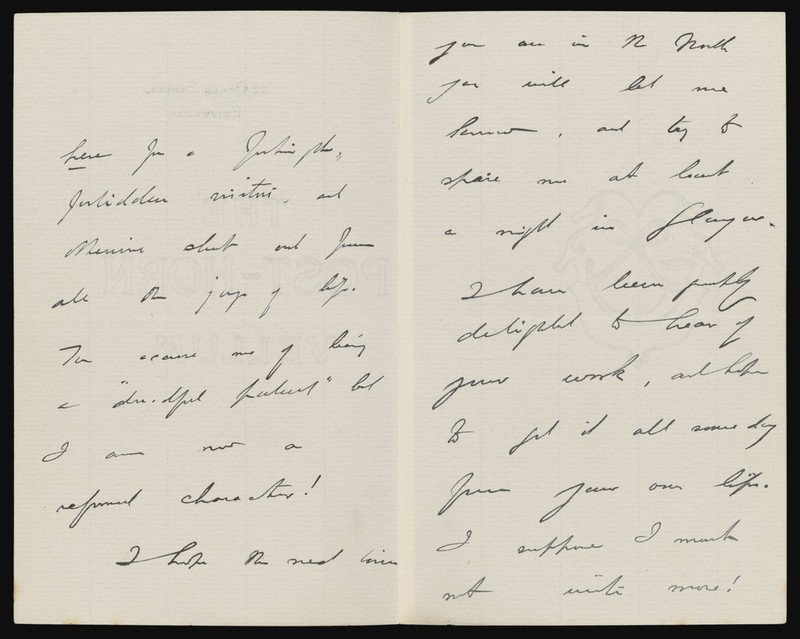 here for a fortnight,
forbidden visitors, and
otherwise shut out from
all the joys of life.
You accuse me of being
a "dreadful patient" but
I am now a
reformed character!
I hope the next time
you are in the North
you will let me
know, and try to
spare me at least
a night in Glasgow.
I have been greatly
delighted to hear of
your work, and hope
to get it all some day
from your own lips.
I suppose I must
not write more!
POST-HORN